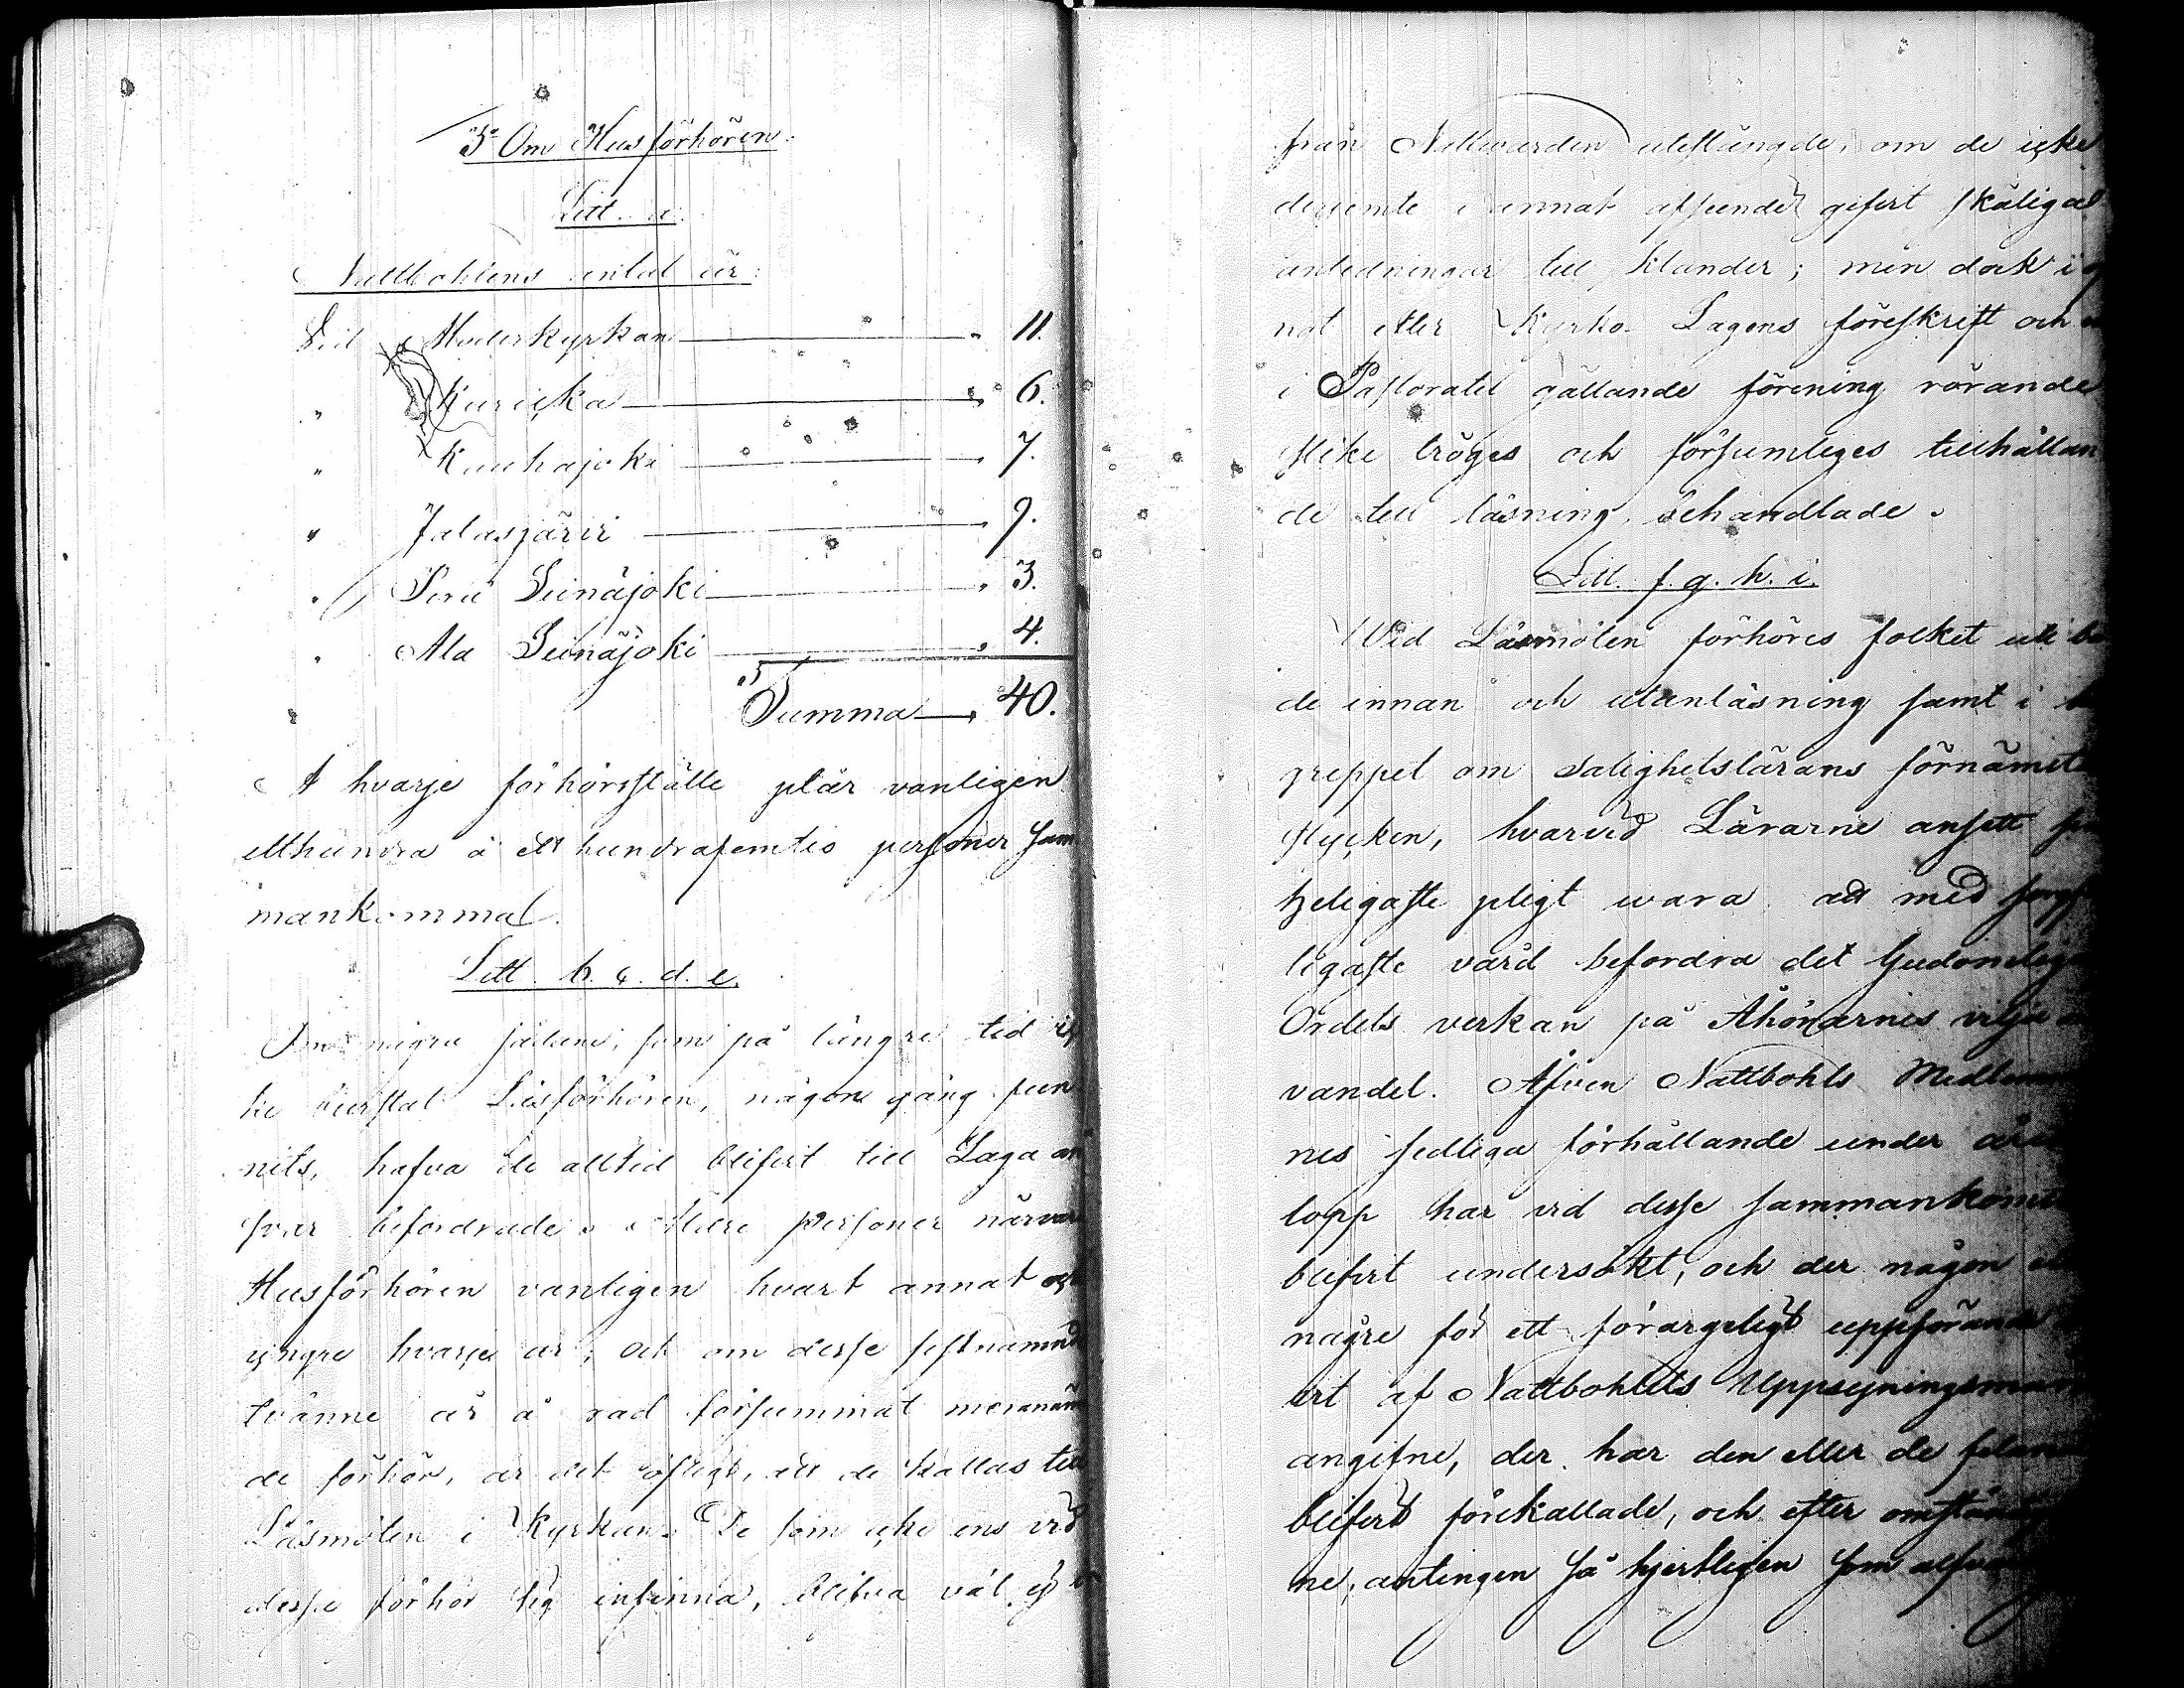 3o Om Husförhören.
Litt. a.
Nattbohlens antal är:
Vid Moderkyrkan " 11.
" Kuricka " 6.
" Kauhajoki " 7.
" Jalasjärvi " 9.
" Perä Seinäjoki " 3.
" Ala Seinäjoki " 4.
Summa " 40.
A hvarje förhörsställe plär vanligen
etthundra à ett hundrafemtio personer sam
mankommal.
Litt. b. c. d. e.
Om några sådane, som på längre tid ic
ke bevistat Läsförhören, någon gång fun
nits, hafva de alltid blifvit till Laga an
svar befordrade. Äldre personer närvara
Husförhören vanligen hvart annat och
yngre hvarje år; och om desse sistnämn
tvänne år å rad försummat
de förhör, är det öfligt, att de kallas till
Läsmöten i Kyrkan. De som icke ens vid
desse förhör sig infinna, blifva väl ej
från Nattvarden utestängde, om de icke
derjemte i annat afseende gifvit skäliga
anledningar till klander; men dock
not efter Kyrko Lagens föreskrift och
i Pastoratet gällande förening rörande
slike tröges och försumliges tillhållan
de till läsning, behandlade.
Litt. f. g. h. i.
Wid Läsmöten förhöres folket uti bå
de innan och utanläsning samt i be
greppet om salighetslärans förnämsta
stycken, hvarvid Lärarne ansett sin
heligaste pligt wara att med sorgfäl
ligaste vård befordra det Gudomliga
Ordets verkan på Åhörarnes vilja
vandel. Äfven Nattbohls Medlemmar
nes sedliga förhållande under årets
lopp har vid desse sammankomster
blifvit undersökt, och der någon el
någre för ett förargeligt uppförande
vit af Nattbohlets Uppsyningsman
angifne, der har den eller de felan
blifvit förekallade, och efter omständ
ne, antingen så hjertligen som alfvar